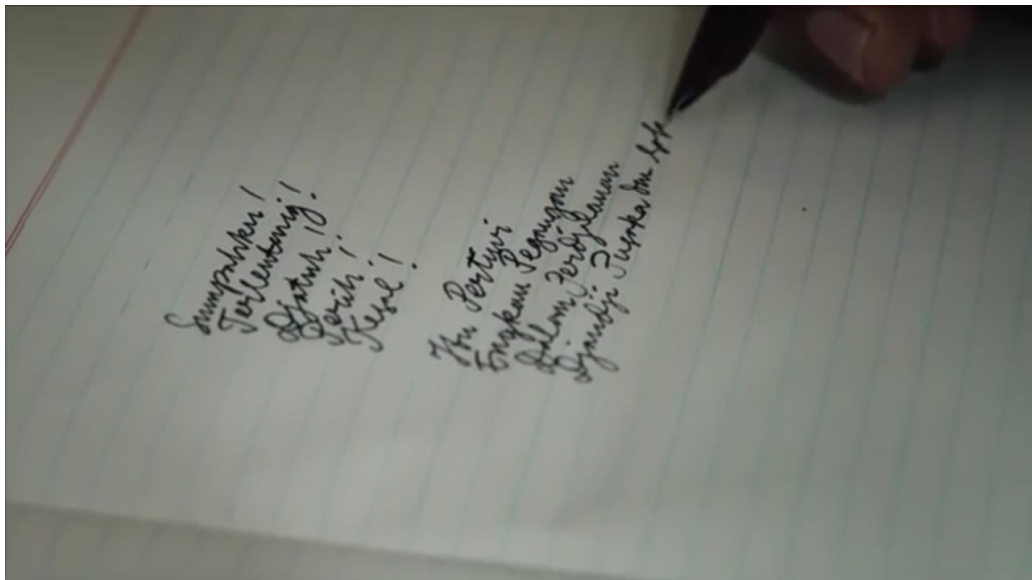 Sumpahku!
Terlentang!
Djatuh!
Perih!
Kesal!
Ibu Pertiwi
Engkau Pegangan
Dalam Perdjalanan
Djandji Pusaka dan